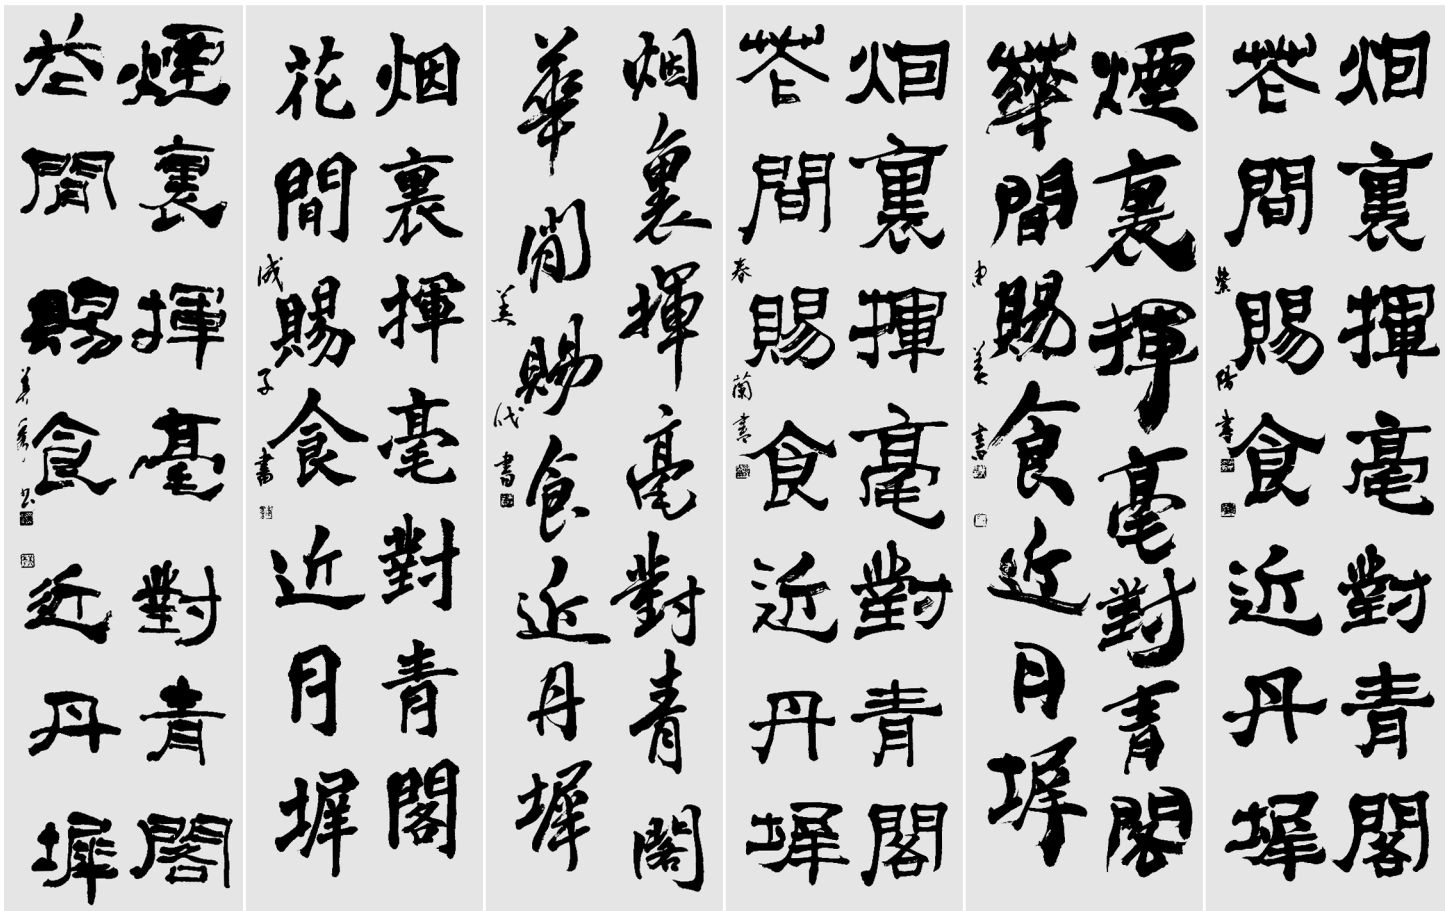 烟裏揮毫對青閣
花間賜食近丹墀
紫陽書
煙裏揮毫對青閣
華間賜食近丹墀
烟裏揮毫對青閣
花間賜食近丹墀
春蘭書
烟裏揮毫對青閣
華間賜食近丹墀
美代書
烟裏揮毫對青閣
花間賜食近月墀
成子書
煙裏揮毫對青閣
花間賜食近丹墀